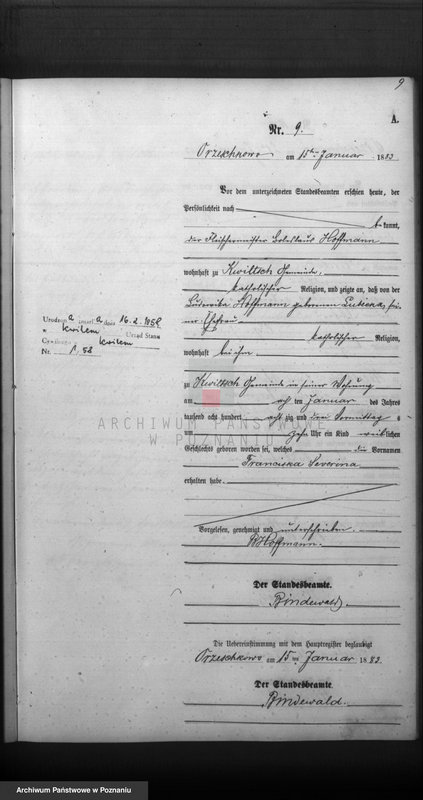 9
A.
Nr. 9.
Orzeschkowo am 15ten Januar 1883
Vor dem unterzeichneten Standesbeamten erschien heute, der
Persönlichkeit nach
bekannt,
der Fleischermeister Boleslaus Hoffmann
wohnhaft zu Kwiltsch Gemeinde,
katholischer Religion, und zeigte an, daß von der
Ludowika Hoffmann geborenen
Ehefrau
katholischer Religion,
wohnhaft bei ihm
zu Kwiltsch Gemeinde in seiner Wohnung
am ten Januar des Jahres
tausend acht hundert acht zig und drei Vormittag s
um zehn Uhr ein Kind weiblichen
Geschlechts geboren worden sei, welches die Vornamen
Franciska Severina
erhalten habe.
Vorgelesen, genehmigt und unterschrieben.
BHoffmann.
Der Standesbeamte.
Bindewald.
Die Uebereinstimmung mit dem Hauptregister beglaubigt
Orzeschkowo am 15ten Januar 1883.
Der Standesbeamte.
Bindewald.
zmarła dnia 16.2.
w Kwilcz Urząd Stanu
Cywilnego Kwilcz
Nr.
ARCHIWUM PAŃSTWOWE
W POZNANIU
Archiwum Państwowe w Poznaniu